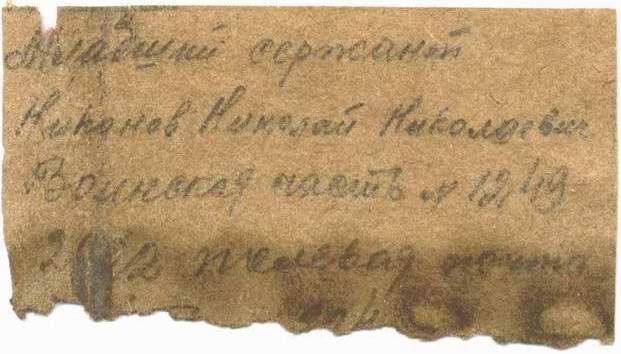 Младший сержант
Никонов Николай Николаевич
Воинская часть № 1249
полевая почта